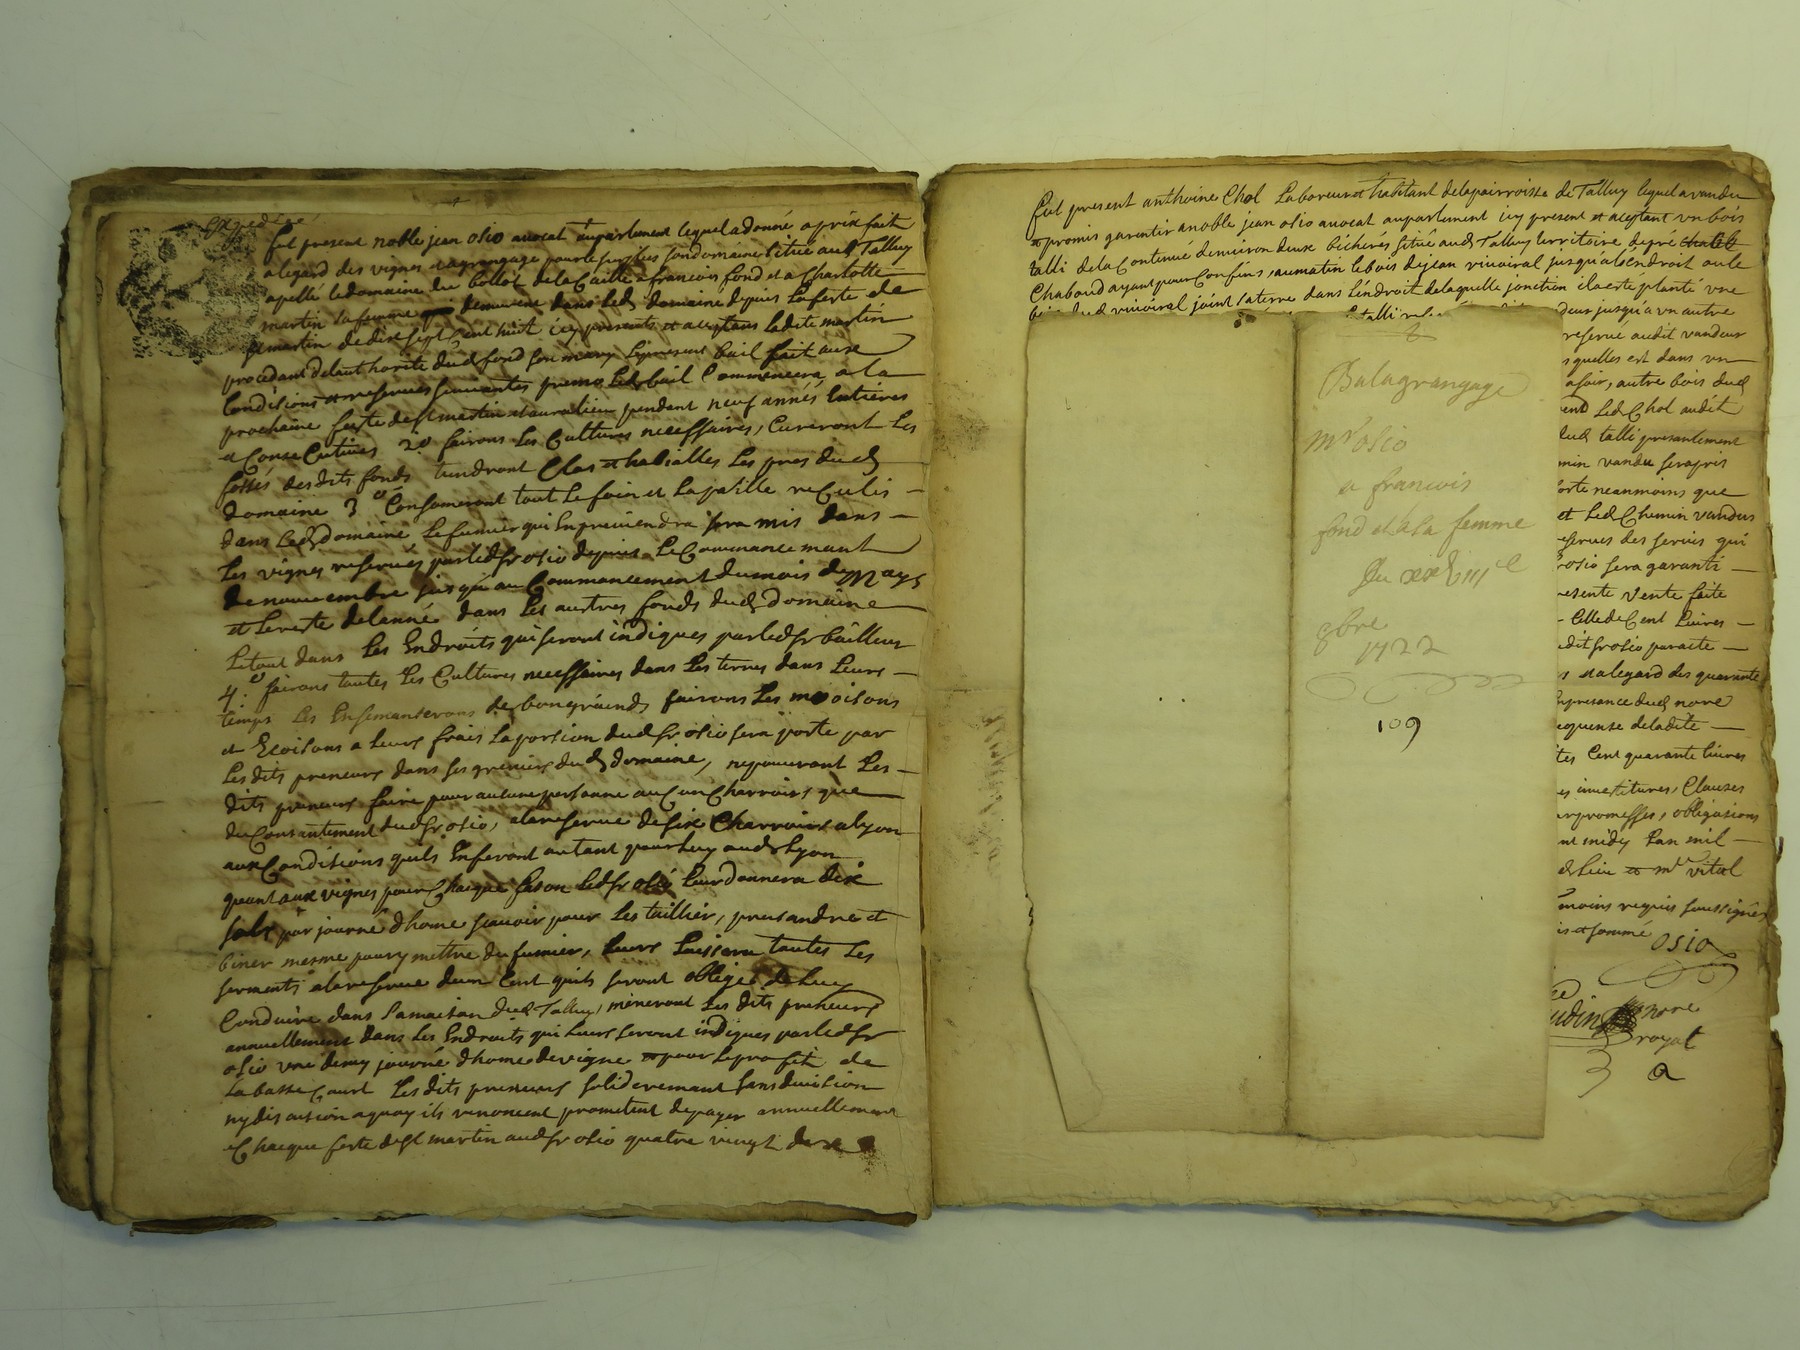 Expediée
fut present noble jean osio avocat au parlement lequel a donné a prix fait
a legard des vignes et agrangage pour le surplus son domaine situé aud Talluy
apellé le domaine du bollot de la Caille a francois fond et a Charlotte
martin sa femme demeurant dans led domaine depuis la feste de
st martin de dix sept cent huit icy presents et aceptans ladite martin
procedant de lauthorité dud fond son mary le present bail fait aux
Conditions et reserves suivantes premo led bail Commencera a la
prochaine feste de st martin et aura lieu pendant neuf annés Entieres
et Consecutives 2o fairons les Cultures necessaires, Cureront les
fossés desdits fonds tiendront Clos et habialles Les pres dud
domaine 3o Consomeront tout le foin et la paille reCulis
dans led domaine Le fumier qui En proviendra sera mis dans
Les vignes reservés par led sr osio depuis Le Commancement
de novembre jusqu'au Commancement du mois de May
et le reste de lanné dans les austres fonds dud domaine
Le tout dans Les Endroits qui seront indiques par led sr bailleur
4o fairons toutes Les Cultures necessaires dans Les terres dans Leurs
temps Les Ensemanserons de bon grains fairons Les moisons
et Ecoisons a leurs frais La portion dud sr osio sera porte par
Les dits preneurs dans ses greniers dud domaine, ne pouvront Les
dits preneurs faire pour aucune personne aucun Charroirs que
du Consantement dud sr osio, a la reserve de six Charroirs a lyon
aux Conditions quils En feront autant pour luy aud lyon
quant aux vignes pour Chaque fason led sr osio leur donnera dix
sols par journé dhome scavoir pour les taillier, provandre et
biner mesme pour y mettre du fumier, leurs laissera toutes les
serments a la reserve dun Cent quils seront obligé de luy
Conduire dans sa maison dud Talluy, meneront les dits preneurs
annuellement dans les Endroits qui leurs seront indiques par led sr
osio une demy journé dhome de vigne et pour le profit de
la basse Court Les dits preneurs soliderement sans division
ny discusion a quoy ils renoncent prometent de payer annuellement
a Chacque feste de st martin aud sr osio quatre vingt dix
fut present anthoine Chol Laboureur et habitant de la parroisse de Talluy lequel a vandu
et promis garentir a noble jean osio avocat au parlement icy present et aceptant un bois
talli de la Contenué denviron deux bicherés situé aud Talluy territoire de pré
Chaboud ayant pour Confins, au matin le bois de jean vivoiral jusqua lendroit ou le
bois dud vivoiral joint la terre dans lendroit de laquelle jonction il a esté planté une
deur jusqu'a un autre
reservé audit vandeur
squelles est dans un
a soir, autre bois dud
led Chol audit
dud talli presantement
min vandu sera pris
orte neanmoins que
et led Chemin vandus
eserves des servis qui
osio sera garanti
resente vente faite
Celle de Cent livres
udit sr osio paraite
s et a legard des quarante
presance dud nore
equense de ladite
tes Cent quarante livres
es investitures, Clauses
r promesses, obligasions
nt midy Lan mil
d lieu et mre vital
moins requis soussignés
is et somme
osio
nore
royal
Bal a grangage
Mr osio
a francois
fond et a sa femme
Du
9bre
1722
109